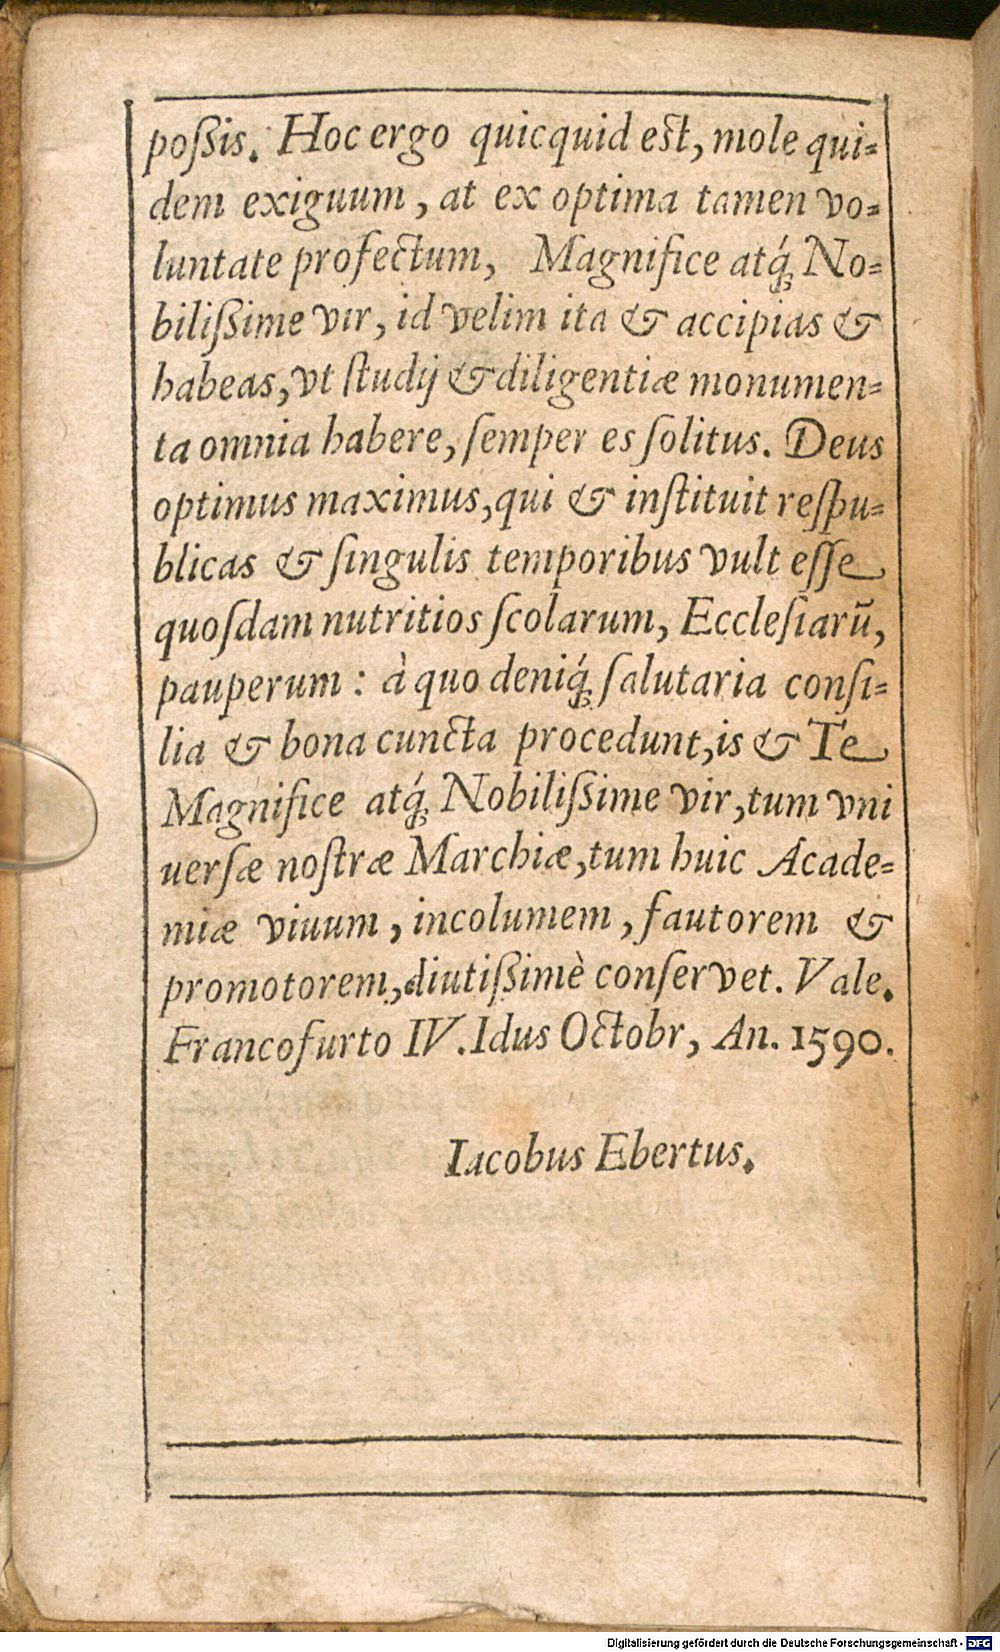 poſßis. Hoc ergo quicquid est, mole qui-
dem exiguum, at ex optima tamen vo-
luntate profectum, Magnifice atq́; No-
biliſßime vir, id velim ita & accipias &
habeas, vt ſtudij & diligentiæ monumen-
ta omnia habere, ſemper es ſolitus. Deus
optimus maximus, qui & inſtituit reſpu-
blicas & ſingulis temporibus vult eſſe
quoſdam nutritios ſcolarum, Eccleſiarũ,
pauperum: à quo deniq́; ſalutaria conſi-
lia & bona cuncta procedunt, is & Te
Magnifice atq́; Nobiliſßime vir, tum vni
uerſæ noſtræ Marchiæ, tum huic Acade-
miæ viuum, incolumem, fautorem &
promotorem, diutiſßimè conſervet. Vale.
Francofurto IV. Idus Octobr, An. 1590.
Iacobus Ebertus.
Digitalisierung gefördert durch die Deutsche Forschungsgemeinschaft - DFG